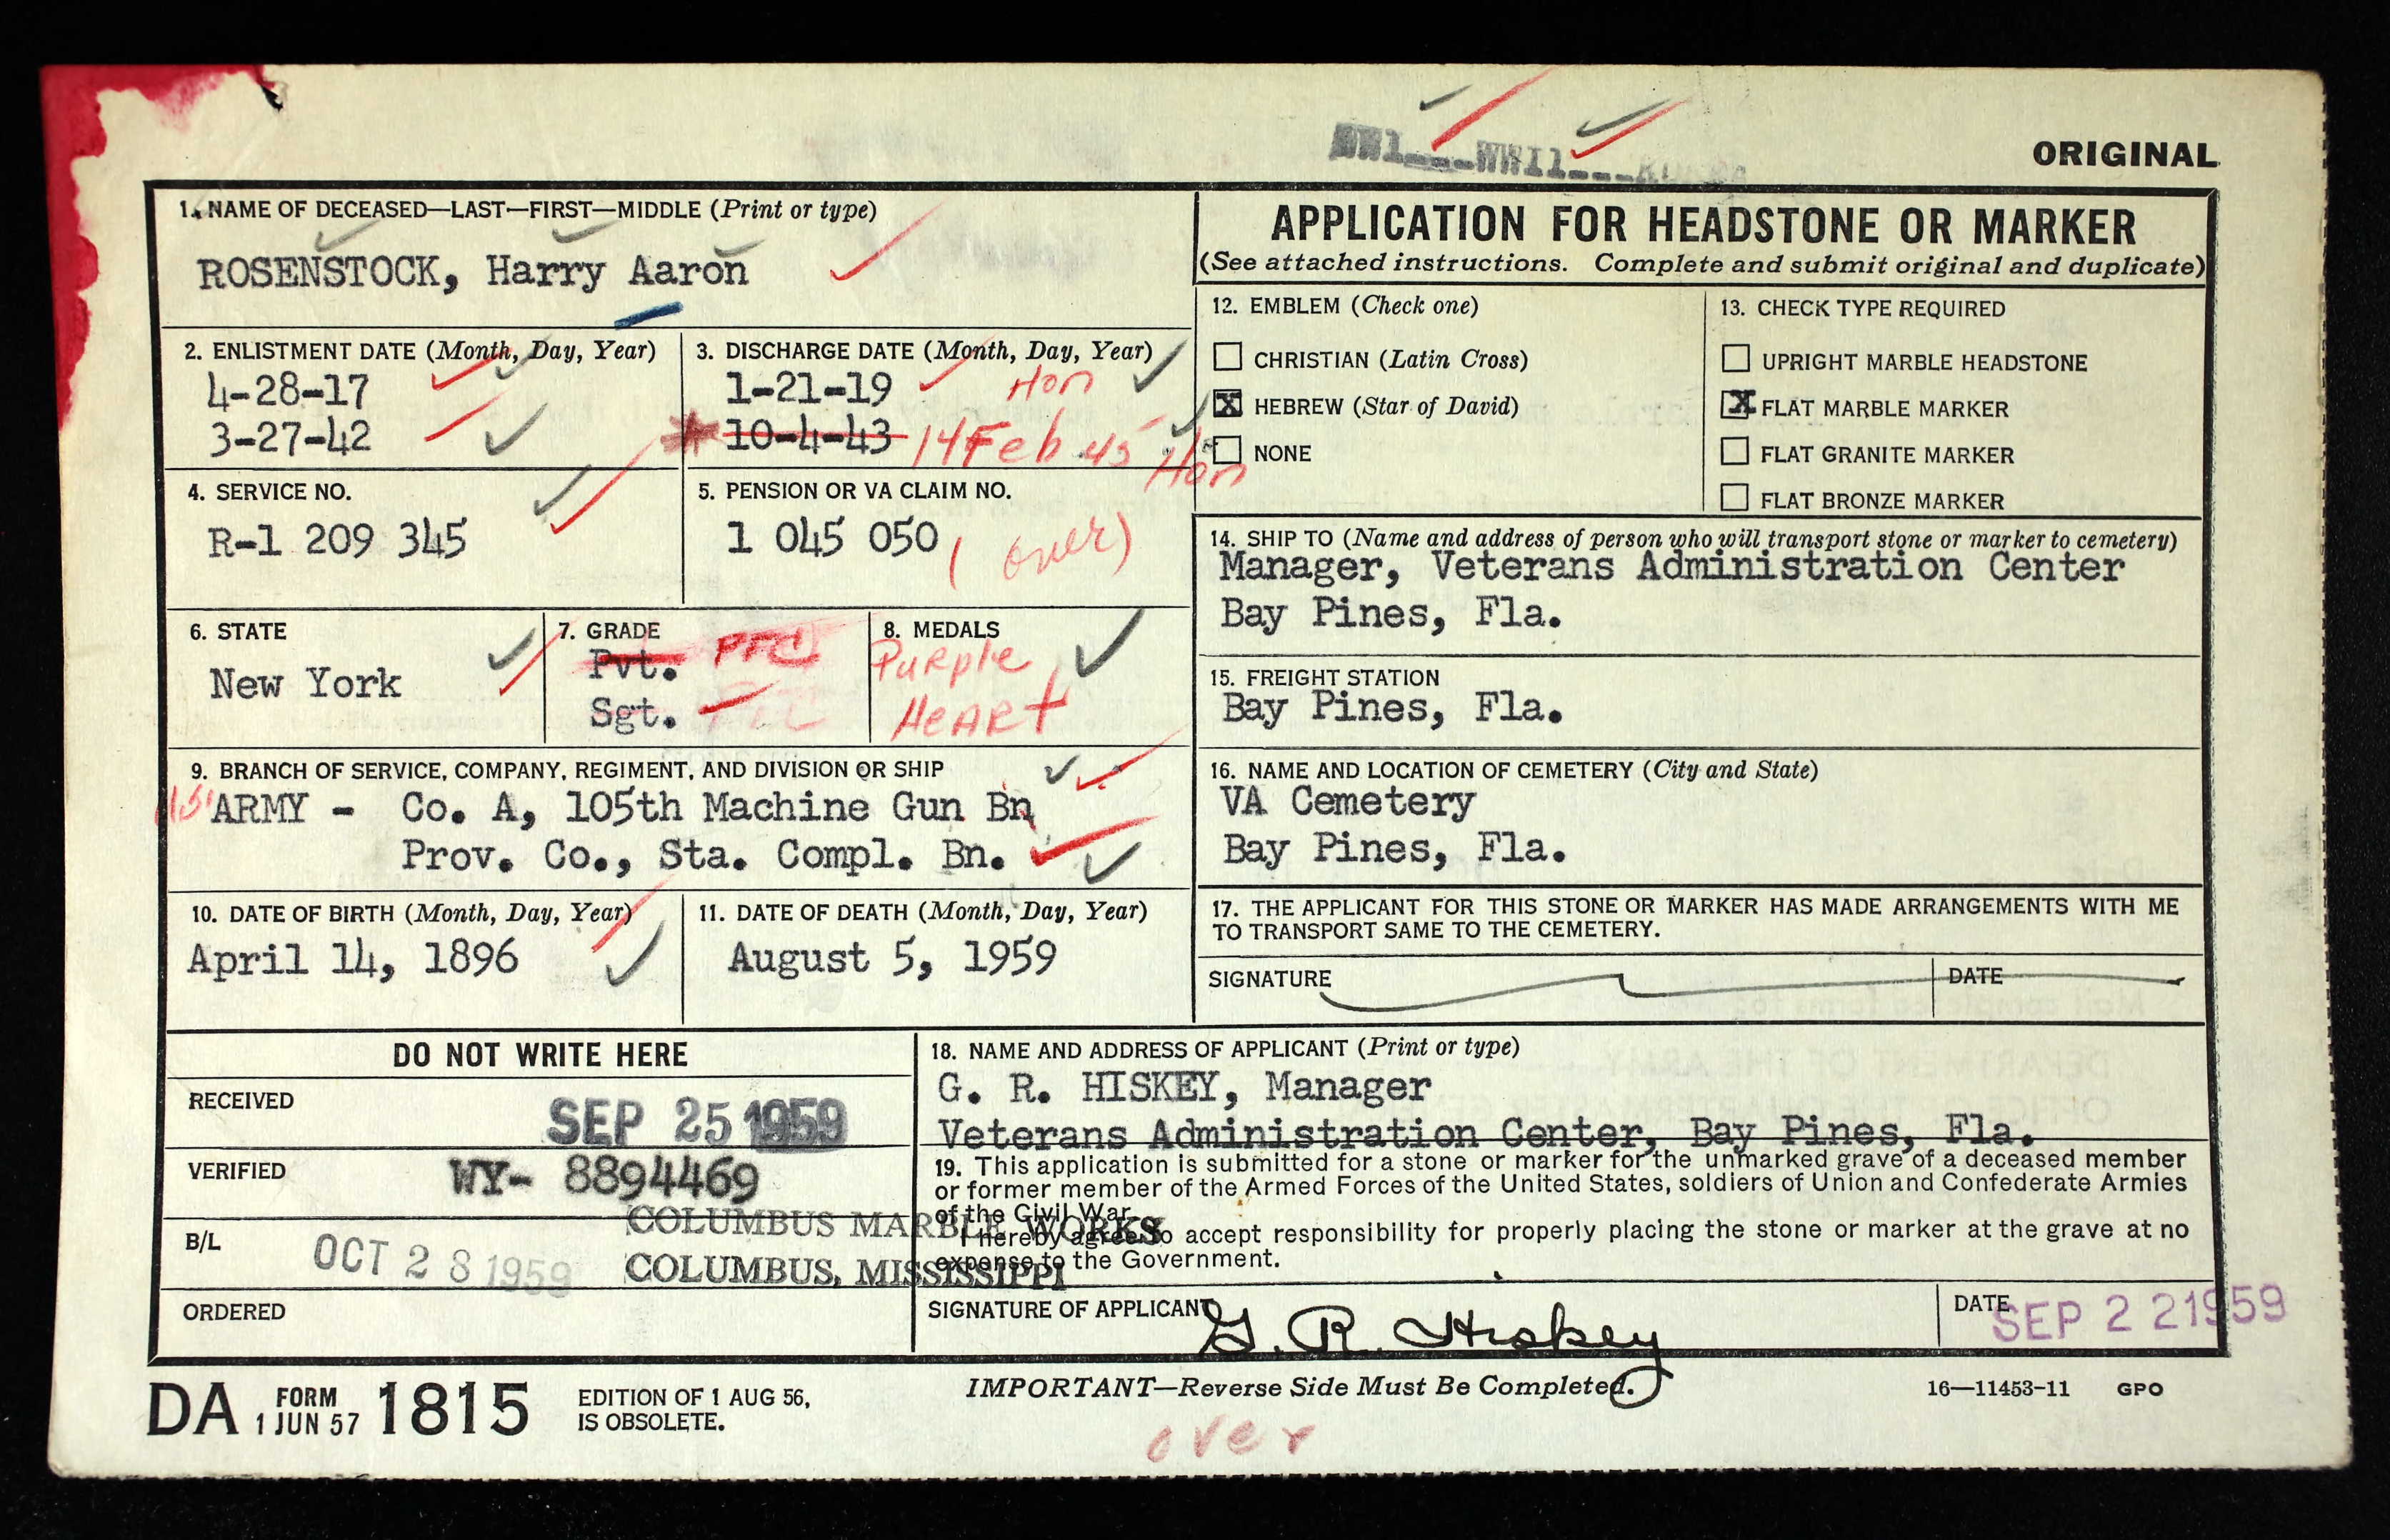 WW1___WWII___Korea
ORIGINAL
1. NAME OF DECEASED—LAST—FIRST—MIDDLE (Print or type)
ROSENSTOCK, Harry Aaron
2. ENLISTMENT DATE (Month, Day, Year)
4-28-17
3-27-42
3. DISCHARGE DATE (Month, Day, Year)
1-21-19 Hon
10-4-43 14 Feb 45 Hon
4. SERVICE NO.
R-1 209 345
5. PENSION OR VA CLAIM NO.
1 045 050 (over)
6. STATE
New York
7. GRADE
Pvt. PFC
Sgt.
8. MEDALS
PURPle
HeARt
9. BRANCH OF SERVICE, COMPANY, REGIMENT, AND DIVISION OR SHIP
ARMY - Co. A, 105th Machine Gun Bn
Prov. Co., Sta. Compl. Bn.
10. DATE OF BIRTH (Month, Day, Year)
April 14, 1896
11. DATE OF DEATH (Month, Day, Year)
August 5, 1959
APPLICATION FOR HEADSTONE OR MARKER
(See attached instructions. Complete and submit original and duplicate)
12. EMBLEM (Check one)
CHRISTIAN (Latin Cross)
X HEBREW (Star of David)
NONE
13. CHECK TYPE REQUIRED
UPRIGHT MARBLE HEADSTONE
X FLAT MARBLE MARKER
FLAT GRANITE MARKER
FLAT BRONZE MARKER
14. SHIP TO (Name and address of person who will transport stone or marker to cemetery)
Manager, Veterans Administration Center
Bay Pines, Fla.
15. FREIGHT STATION
Bay Pines, Fla.
16. NAME AND LOCATION OF CEMETERY (City and State)
VA Cemetery
Bay Pines, Fla.
17. THE APPLICANT FOR THIS STONE OR MARKER HAS MADE ARRANGEMENTS WITH ME
TO TRANSPORT SAME TO THE CEMETERY.
SIGNATURE
DATE
DO NOT WRITE HERE
RECEIVED
SEP 25 1959
VERIFIED
WY- 8894469
B/L
OCT 28 1959
COLUMBUS MARBLE WORKS
COLUMBUS, MISSISSIPPI
ORDERED
18. NAME AND ADDRESS OF APPLICANT (Print or type)
G. R. HISKEY, Manager
Veterans Administration Center, Bay Pines, Fla.
19. This application is submitted for a stone or marker for the unmarked grave of a deceased member
or former member of the Armed Forces of the United States, soldiers of Union and Confederate Armies
of the Civil War.
I hereby agree to accept responsibility for properly placing the stone or marker at the grave at no
expense to the Government.
SIGNATURE OF APPLICANT
G. R. Hiskey
DATE
SEP 22 1959
DA FORM 1 JUN 57 1815
EDITION OF 1 AUG 56,
IS OBSOLETE.
IMPORTANT—Reverse Side Must Be Completed.
16—11453-11 GPO
over